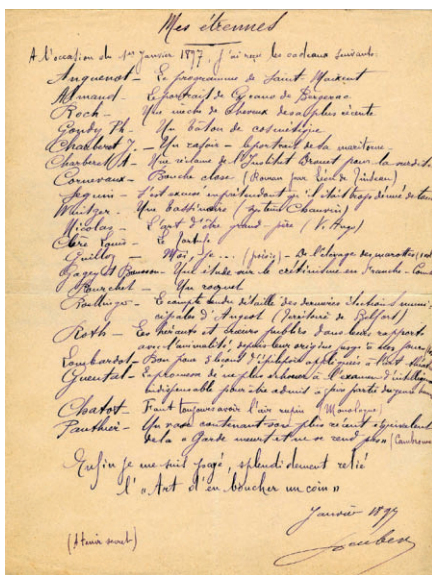 Mes étrennes
A l'occasion du 1er Janvier 1897, j'ai reçu les cadeaux suivants
Anguenot - Le programme de Saint Maixent
Arnaud - Le portrait de Cyrano de Bergerac
Roch - Une mèche de cheveux des plus récente
Goudy Ph. - Un bâton de cosmétique
Chamberet J. - Un rasoir - le portrait de la maritorne
Charberet A - Une réclame de l'Institut Drouet pour la surdité
Cornevaux - Bouche close (Roman par Léon de Tinseau)
Seguin - S'est excusé en prétendant qu'il était trop démé de
Une bassinoire (système Chauvin)
Nicolas - L'art d'être grand-père (V. Hugo)
Clère Louis - Le
Guilloz - Moi, je... (précis) - De l'élevage des marottes
Une étude sur le crétinisme en Franche-Comté
Un roquet
Le compte rendu détaillé des dernières élections muni-
cipales d'Angeot (Territoire de Belfort)
Roth - Les et leurs dans leurs rapports
avec l'animalité, depuis leur origine jusqu'à
Lombardot - Bon pour 3 leçons d'épilation appliquées à
Gueutal - La promesse de ne plus échouer à l'examen d'
indispensable pour être admis à faire partie du
Chatot - Faut toujours avoir l'air rupin (Monologue)
Panthier - Un vase contenant son plus récent équivalent
de la "Garde meurt et ne se rend pas" (Cambronne)
Enfin je me suis payé, splendidement relié
l'"Art d'en boucher un coin"
Janvier 1897
(A tenir secret)